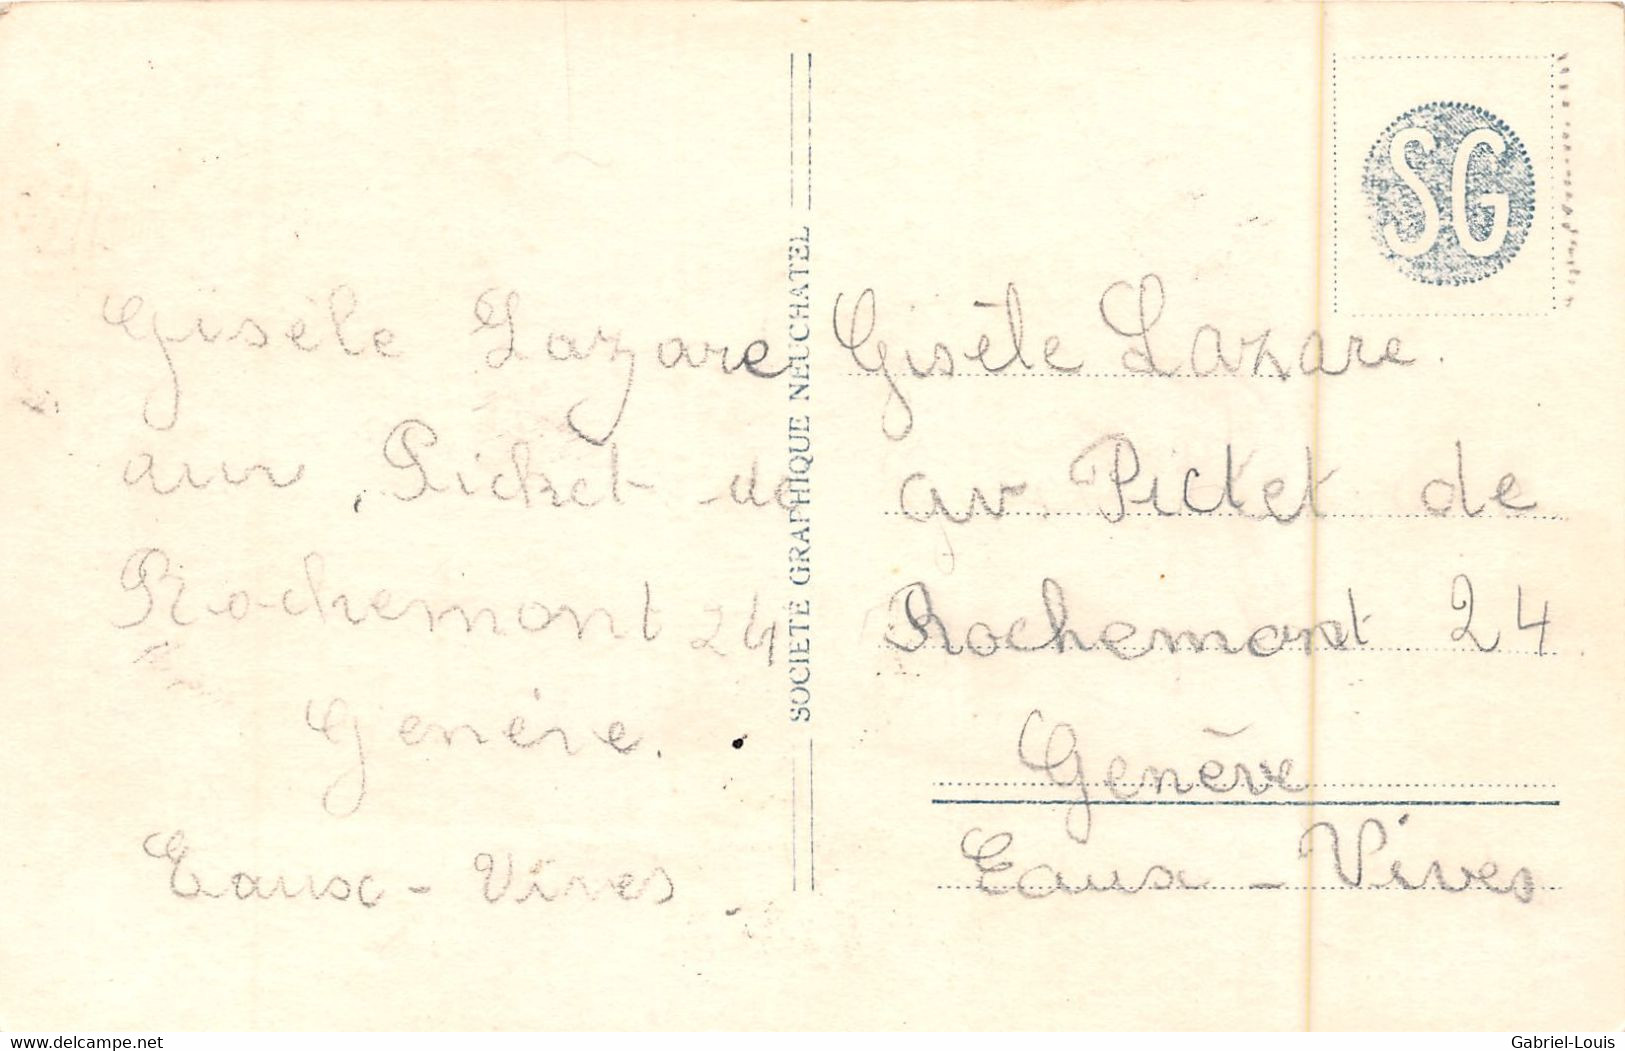 Gisèle Lazare
Pichet de
Rochemont 24
Genève.
Eaux - Vives
SOCIÉTÉ GRAPHIQUE NEUCHATEL
SG
Gisèle Lazare.
av. Pictet de
Rochemont 24
Genève
Eaux - Vives
www.delcampe.net
Gabriel-Louis